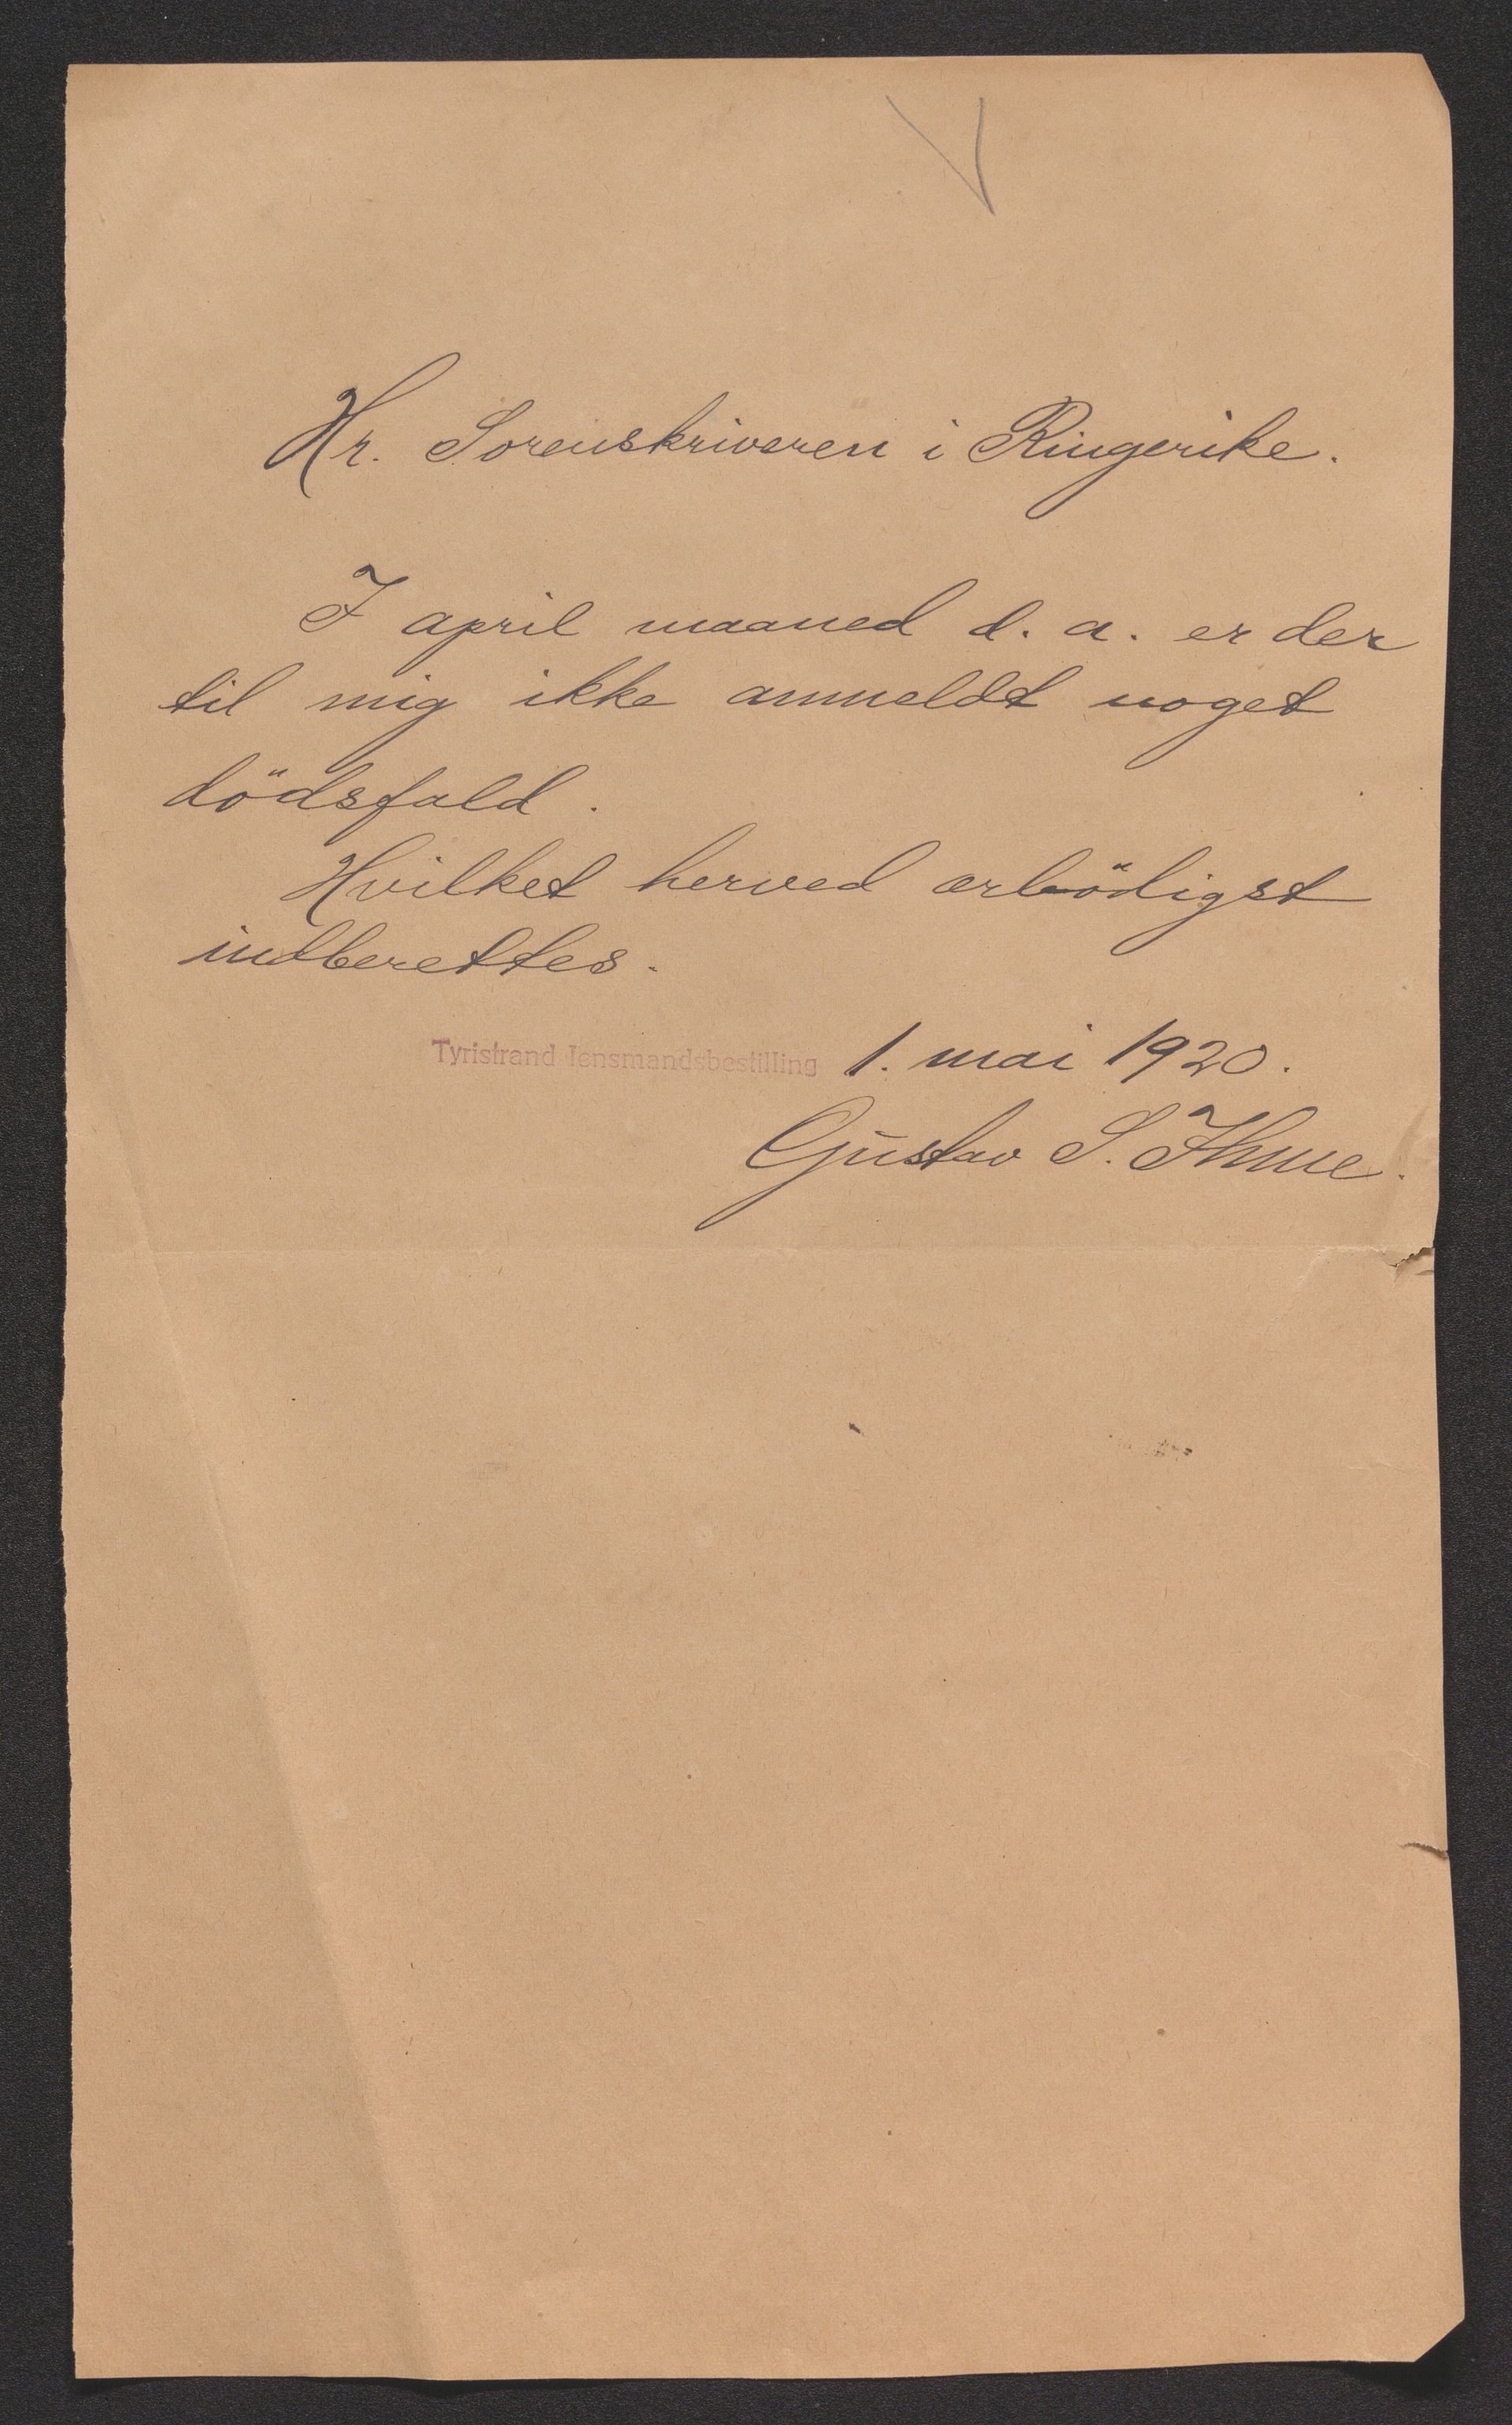 Hr. Sorenskriveren i Ringerike.
I april maaned d. a. er der
til mig ikke anmeldt noget
dödsfald.
Hvilket herved ærbödigst
indberettes.
Tyristrand lensmandsbestilling 1. mai 1920.
Gustav S. Ihme.